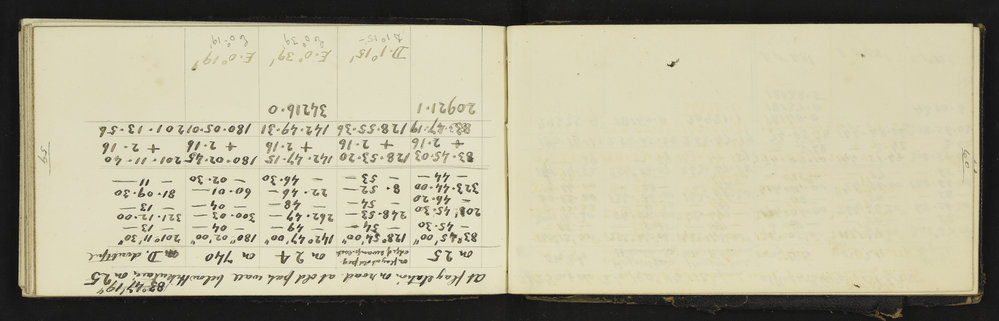 83°47'19"
At flag station on road at old pah wall below on 25
on 25 on flag at old peg edge of swamp on 24 on 740 on D
83°45'00" 128°54'00" 142°47'00" 180°02'00" 201°11'30"
— 45.30 — 54 — — 49 — — 04 — — 13 —
208.45.30 248.53 — 262.47 — 300.03 — 321.12.00
— 46.20 — 54 — 48 — 04 — 13 —
323.44.00 8.52 — 22.46 — 60.01 — 81.09.30
— 44 — — 53 — — 46.30 — 02.30 — 11 —
83.45.03 128.53.20 142.47.15 180.02.45 201.11.40
+ 2.16 + 2.16 + 2.16 + 2.16 + 2.16
83.47.19 128.55.36 142.49.31 180.05.01 201.13.56
20921.1 34216.0
D.1°15' E.0°39' E.0°19'
1°15— 0°39' 0°19'
59
60